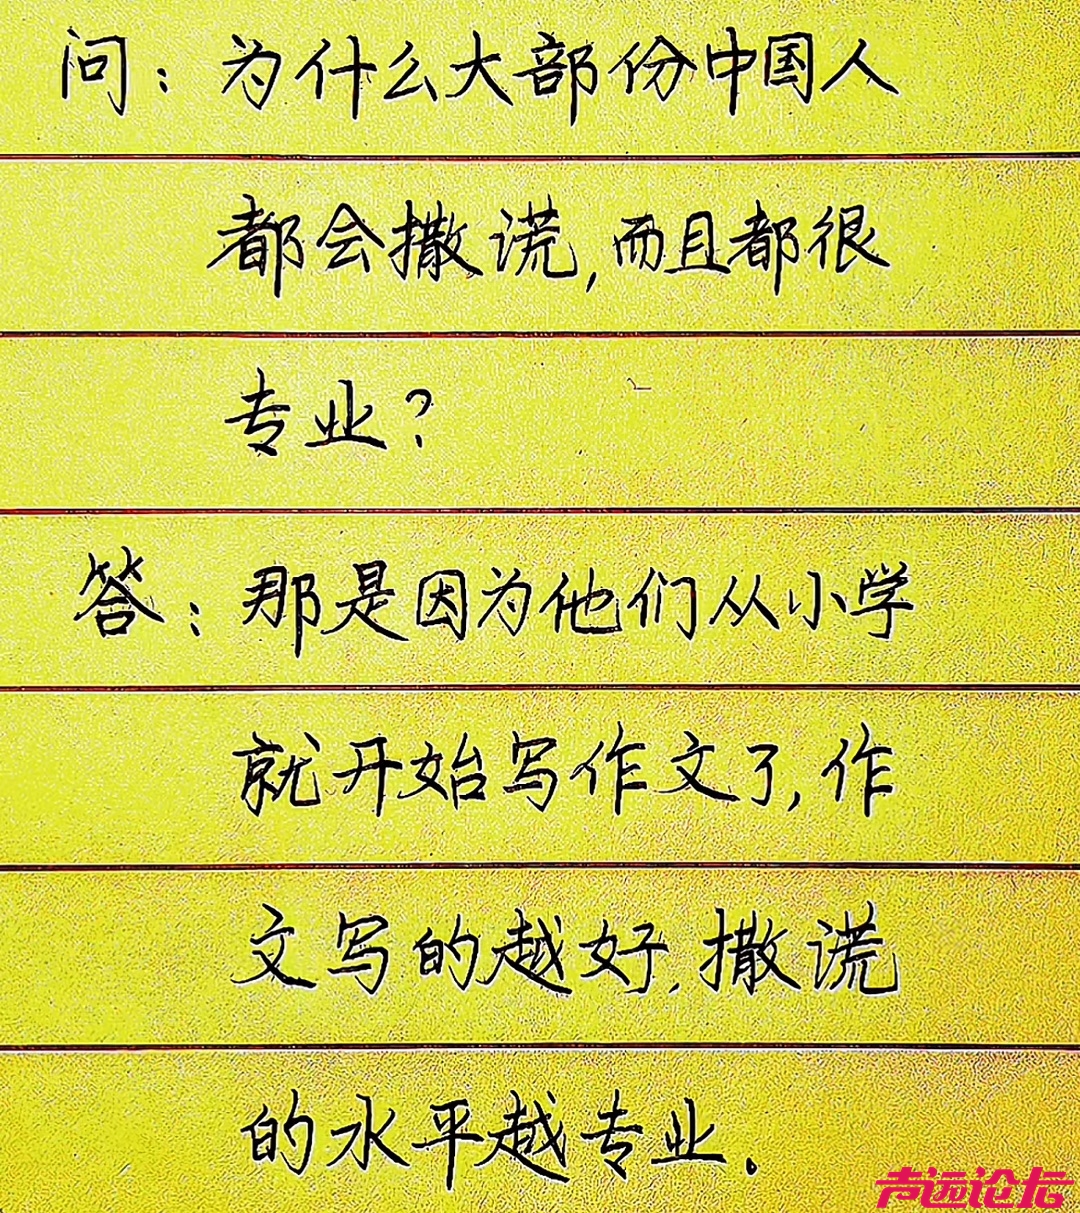 问：为什么大部份中国人
都会撒谎，而且都很
专业？
答：那是因为他们从小学
就开始写作文了，作
文写的越好，撒谎
的水平越专业。
声远论坛